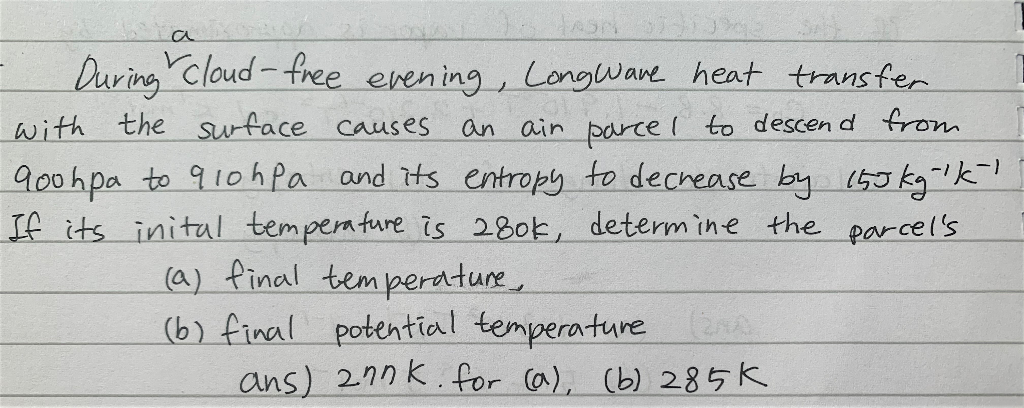 During a cloud-free evening, LongWave heat transfer
with the surface causes an air parcel to descend from
900hpa to 910hPa and its entropy to decrease by 15J kg⁻¹k⁻¹
If its inital temperature is 280k, determine the parcel's
(a) final temperature,
(b) final potential temperature
ans) 277k. for (a), (b) 285K